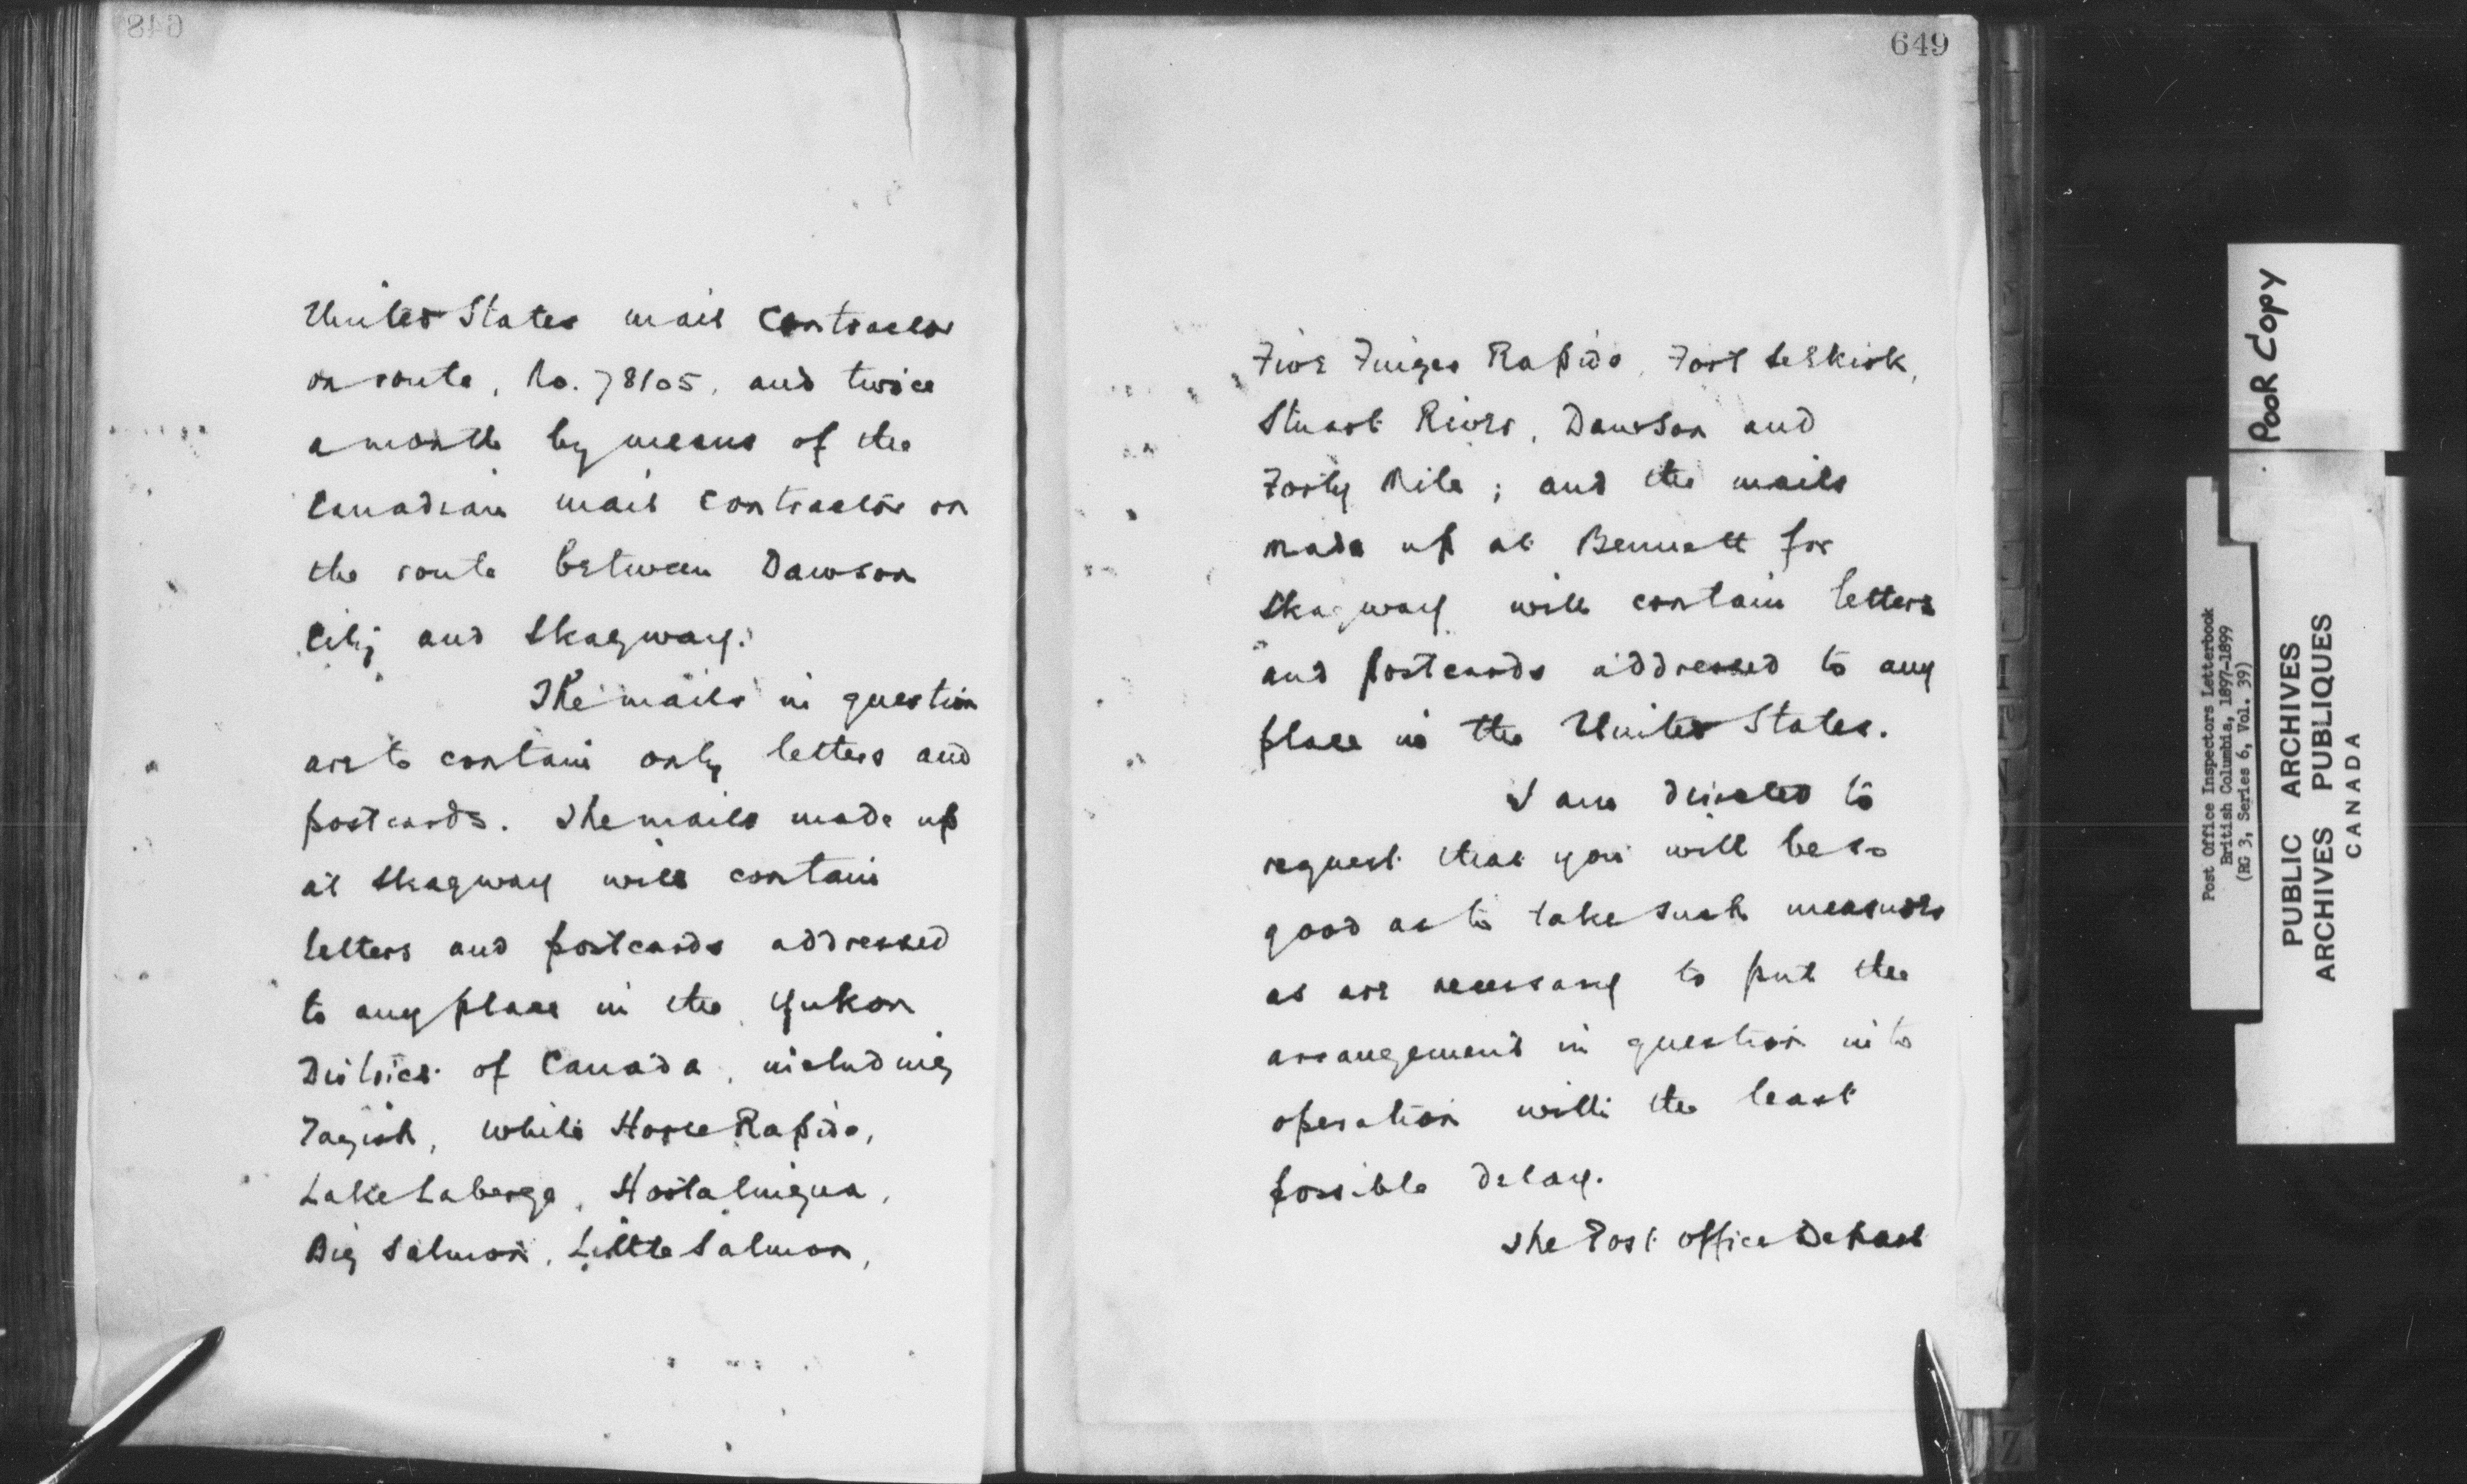 648
United States mail contractor
on route, No. 78105, and twice
a month by means of the
Canadian mail contractor on
the route between Dawson
City and Skagway.
The mails in question
are to contain only letters and
postcards. The mails made up
at Skagway will contain
letters and postcards addressed
to any place in the Yukon
District of Canada, including
Tagish, White Horse Rapids,
Lake Laberge, Hootalinqua,
Big Salmon, Little Salmon,
649
Five Finger Rapids, Fort Selkirk,
Stuart River, Dawson and
Forty Mile; and the mails
made up at Bennett for
Skagway will contain letters
and postcards addressed to any
place in the United States.
I am directed to
request that you will be so
good as to take such measures
as are necessary to put the
arrangement in question into
operation with the least
possible delay.
The Post Office Depart
POOR COPY
Post Office Inspectors Letterbook
British Columbia, 1897-1899
(RG 3, Series 6, Vol. 39)
PUBLIC ARCHIVES
ARCHIVES PUBLIQUES
CANADA